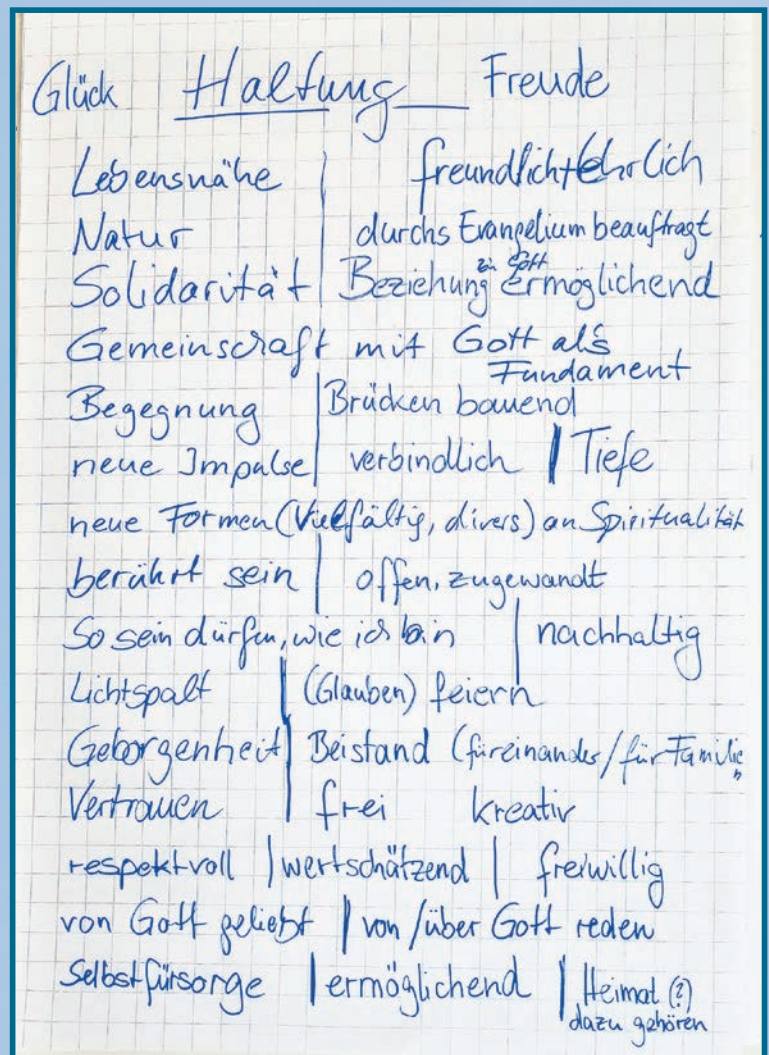 Glück Haltung Freude
Lebensnähe | freundlich + ehrlich
Natur | durchs Evangelium beauftragt
Solidarität | Beziehung zu Gott ermöglichend
Gemeinschaft mit Gott als
Fundament
Begegnung | Brücken bauend
neue Impulse | verbindlich | Tiefe
neue Formen (Vielfältig, divers) an Spiritualität
berührt sein | offen, zugewandt
So sein dürfen, wie ich bin | nachhaltig
Lichtspalt | (Glauben) feiern
Geborgenheit | Beistand (füreinander/für Familien
Vertrauen | frei kreativ
respektvoll | wertschätzend | freiwillig
von Gott geliebt | von/über Gott reden
Selbstfürsorge | ermöglichend | Heimat (?)
dazu gehören